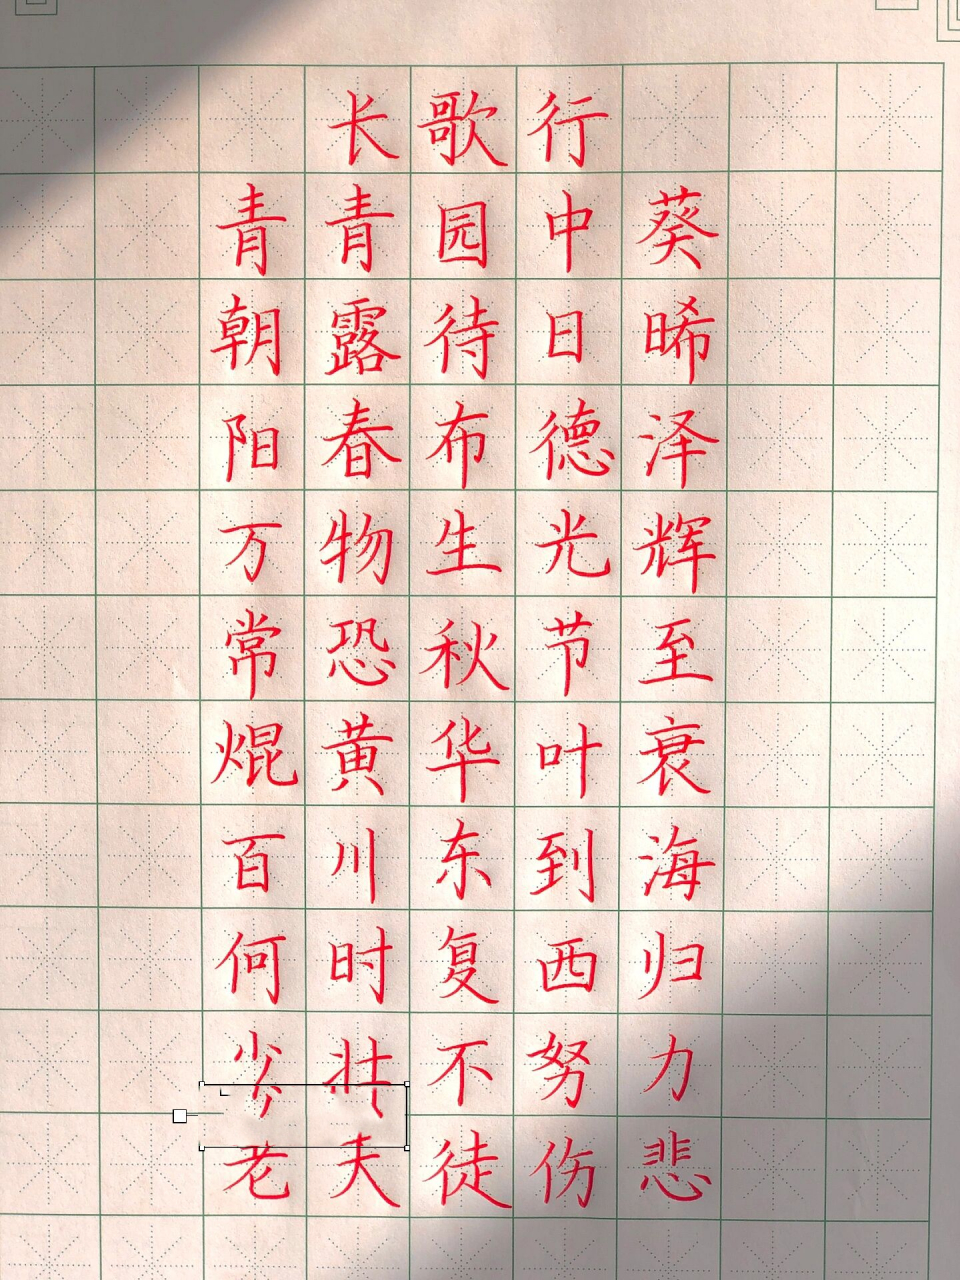 长歌行
青青园中葵
朝露待日晞
阳春布德泽
万物生光辉
常恐秋节至
焜黄华叶衰
百川东到海
何时复西归
少壮不努力
老夫徒伤悲